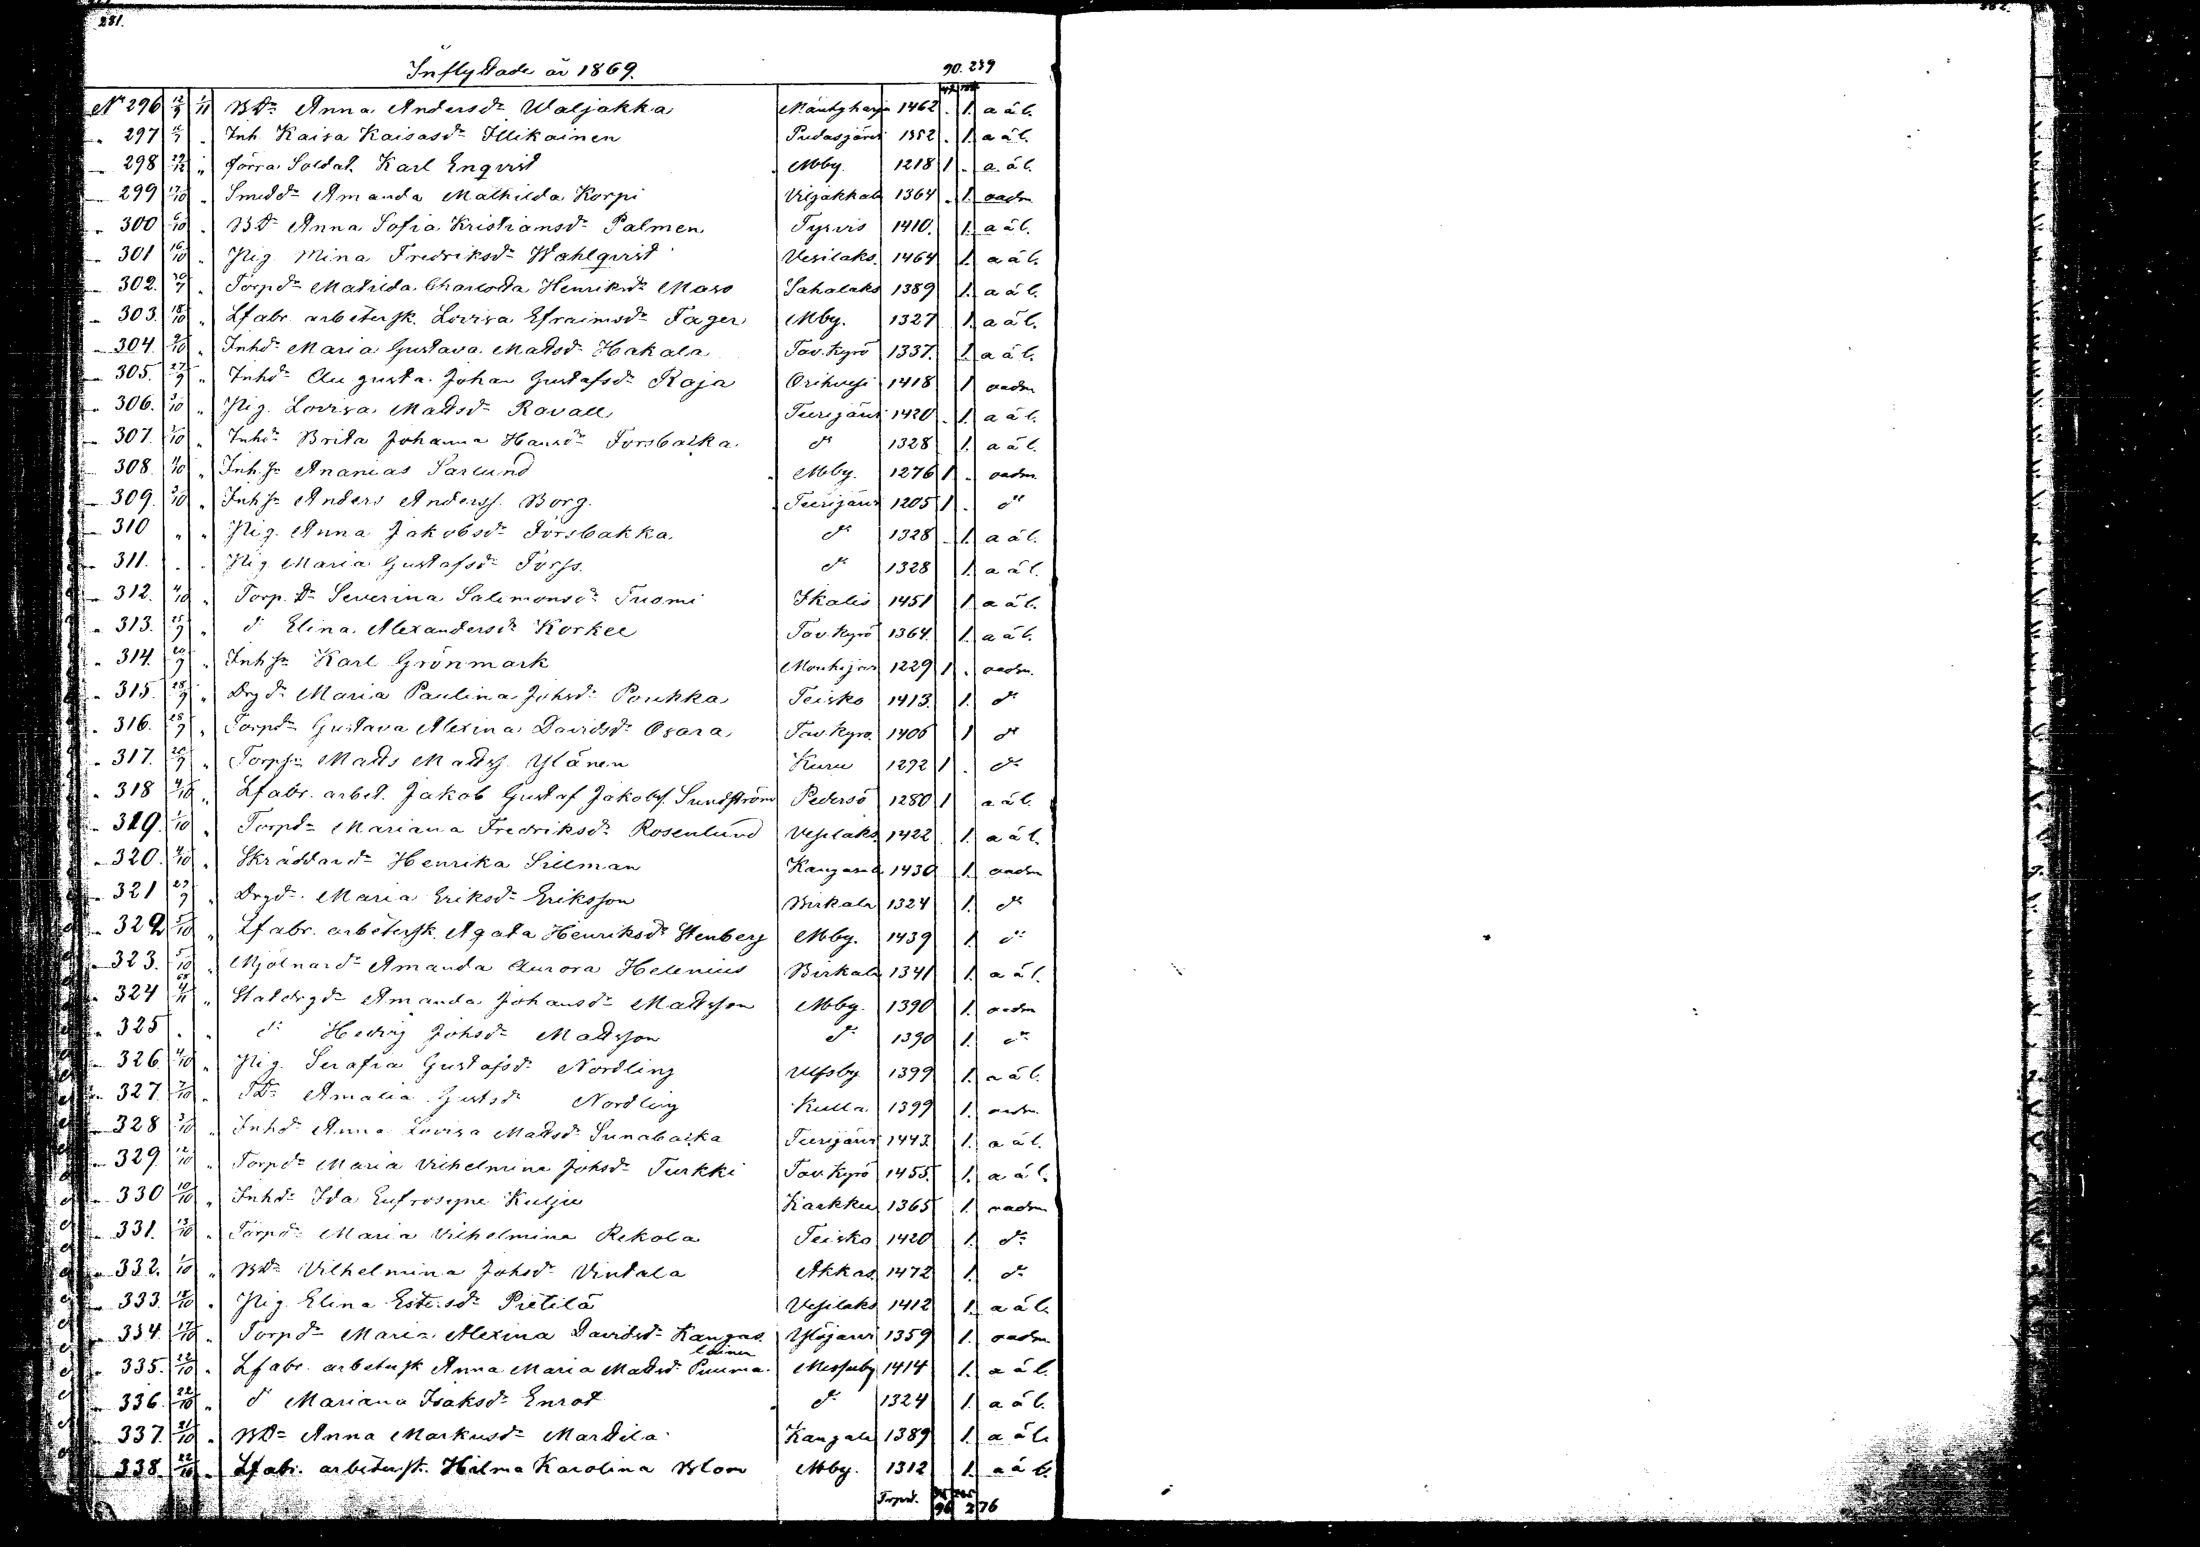 281.
Inflyttade år 1869.
90. 239
No 296 12/9 1/11 BDr Anna Andersdr Waljakka Mäntyharju 1462 . 1. a ä l.
" 297 " Inh. Kaisa Kaisasdr Illikainen Pudasjärvi 1352 . 1. a ä l.
" 298 " förra Soldat. Karl Enqvist Mby. 1218 1 . a ä l.
" 299 17/10 " Smeddr Amanda Mathilda Korpi Viljakkala 1364 . 1. oadm
" 300 6/10 " BDr Anna Sofia Kristiansdr Palmen Tyrvis 1410. 1. a ä l.
" 301 16/10 " Pig Mina Fredriksdr Wahlqvist Vesilaks. 1464 1. a ä l.
" 302. " Torpdr Matilda Charlotta Henriksdr Mass Sahalaks 1389 1. a ä l.
" 303. 18/10 " Lfabr. arbetersk. Lovisa Efraimsdr Fager Mby. 1327 1. a ä l.
" 304. " Inhdr Maria Gustava Mattsdr Hakala Tav. Kyrö 1337. 1. a ä l.
" 305. 27/9 " Inhdr Augusta Johan Gustafsdr Raja Orihvesi 1418 1 oadm
" 306. 3/10 " Pig. Lovisa Mattsdr Ravall Teerijärvi 1420 . 1. a ä l.
" 307. 1/10 " Inhdr Brita Johanna Hansdr Forsbacka do 1328 1. a ä l.
" 308. " Inh.sn Ananias Sarlund Mby. 1276 1 . oadm.
" 309. 3/10 " Inhsn Anders Anderss. Borg. Teerijärvi 1205 1 . do
" 310 " " Pig. Anna Jakobsdr Forsbakka do 1328 . 1. a ä l.
" 311. " " Pig Maria Gustafsdr Forss. do 1328 1. a ä l.
" 312. 4/10 " Torp. Dr Severina Salomonsdr Tuomi Ikalis 1451 1. a ä l.
" 313. 25/9 " do Elina Alexandersdr Korkee Tav. Kyrö 1364. 1. a ä l.
" 314. 20/9 " Inhsn Karl Grönmark Mouhijärvi 1229 1 . oadm.
" 315. 28/9 " Drgdr Maria Paulina Johsdr Poukka Teisko 1413. 1. do
" 316. 25/9 " Torpdr Gustava Alexina Davidsdr Osara Tav. Kyrö. 1406 1 do
" 317. 26/9 " Torpsn Matts Mattss. Ylänen Kuru 1292 1 . do
" 318 4/10 " Lfabr. arbet. Jakob Gustaf Jakobs. Sundström Pedersö 1280 1 a ä l.
" 319. 1/10 " Torpdr Mariana Fredriksdr Rosenlund Vesilaks. 1422 . 1. a ä l.
" 320. 4/10 " Skräddardr Henrika Sillman Kangasala 1430 1. oadm
" 321 27/9 " Drgdr Maria Eriksdr Eriksson Birkala 1324 1. do
" 322 5/10 " Lfabr. arbetersk. Agata Henriksdr Stenberg Mby. 1439 1. do
" 323. 5/10 " Mjölnardr Amanda Aurora Helenius Birkala 1341 1. a ä l.
" 324 4/11 " Statdrgdr Amanda Johansdr Mattsson Mby. 1390 1. oadm
" 325 " " do Hedvig Johsdr Mattsson do 1390 1. do
" 326. 4/10 " Pig. Serafia Gustafsdr Nordling Ulfsby 1399 1. a ä l.
" 327. 7/10 " TDr Amalia Gustsdr Nordling Kulla 1399 1. oadm.
" 328 3/10 " Inhdr Anna Lovisa Mattsdr Sunabacka Teerijärvi 1443. 1. a ä l.
" 329. 12/10 " Torpdr Maria Vilhelmina Johsdr Turkki Tav. Kyrö 1455. 1. a ä l.
" 330 10/10 " Inhdr Ida Eufrosyne Kulju Karkku 1365 1. oadm
" 331. 13/10 " Torpdr Maria Vilhelmina Rekola Teisko 1420 1. do
" 332. 1/10 " BDr Vilhelmina Johsdr Vintala Akkas. 1472 1. do
" 333. 18/10 " Pig. Elina Estersdr Pietilä Vesilaks 1412 1. a ä l.
" 334. 17/10 " Torpdr Maria Alexina Davidsdr Kangas Ylöjärvi 1359 1. oadm.
" 335. 22/10 " Lfabr. arbetersk Anna Maria Mattsdr Puumalainen Messuby 1414 1. a ä l.
" 336. 22/10 " do Mariana Isaksdr Enrot do 1324 1. a ä l.
" 337. 21/10 " BDr Anna Markusdr Marttila Kangala 1389 1. a ä l.
" 338. 22/10 " Lfabr. arbetersk. Hilma Karolina Blom Mby. 1312 1. a ä l.
Transp. 96 276